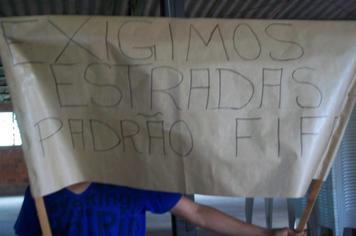 EXIGIMOS
ESTRADAS
PADRÃO